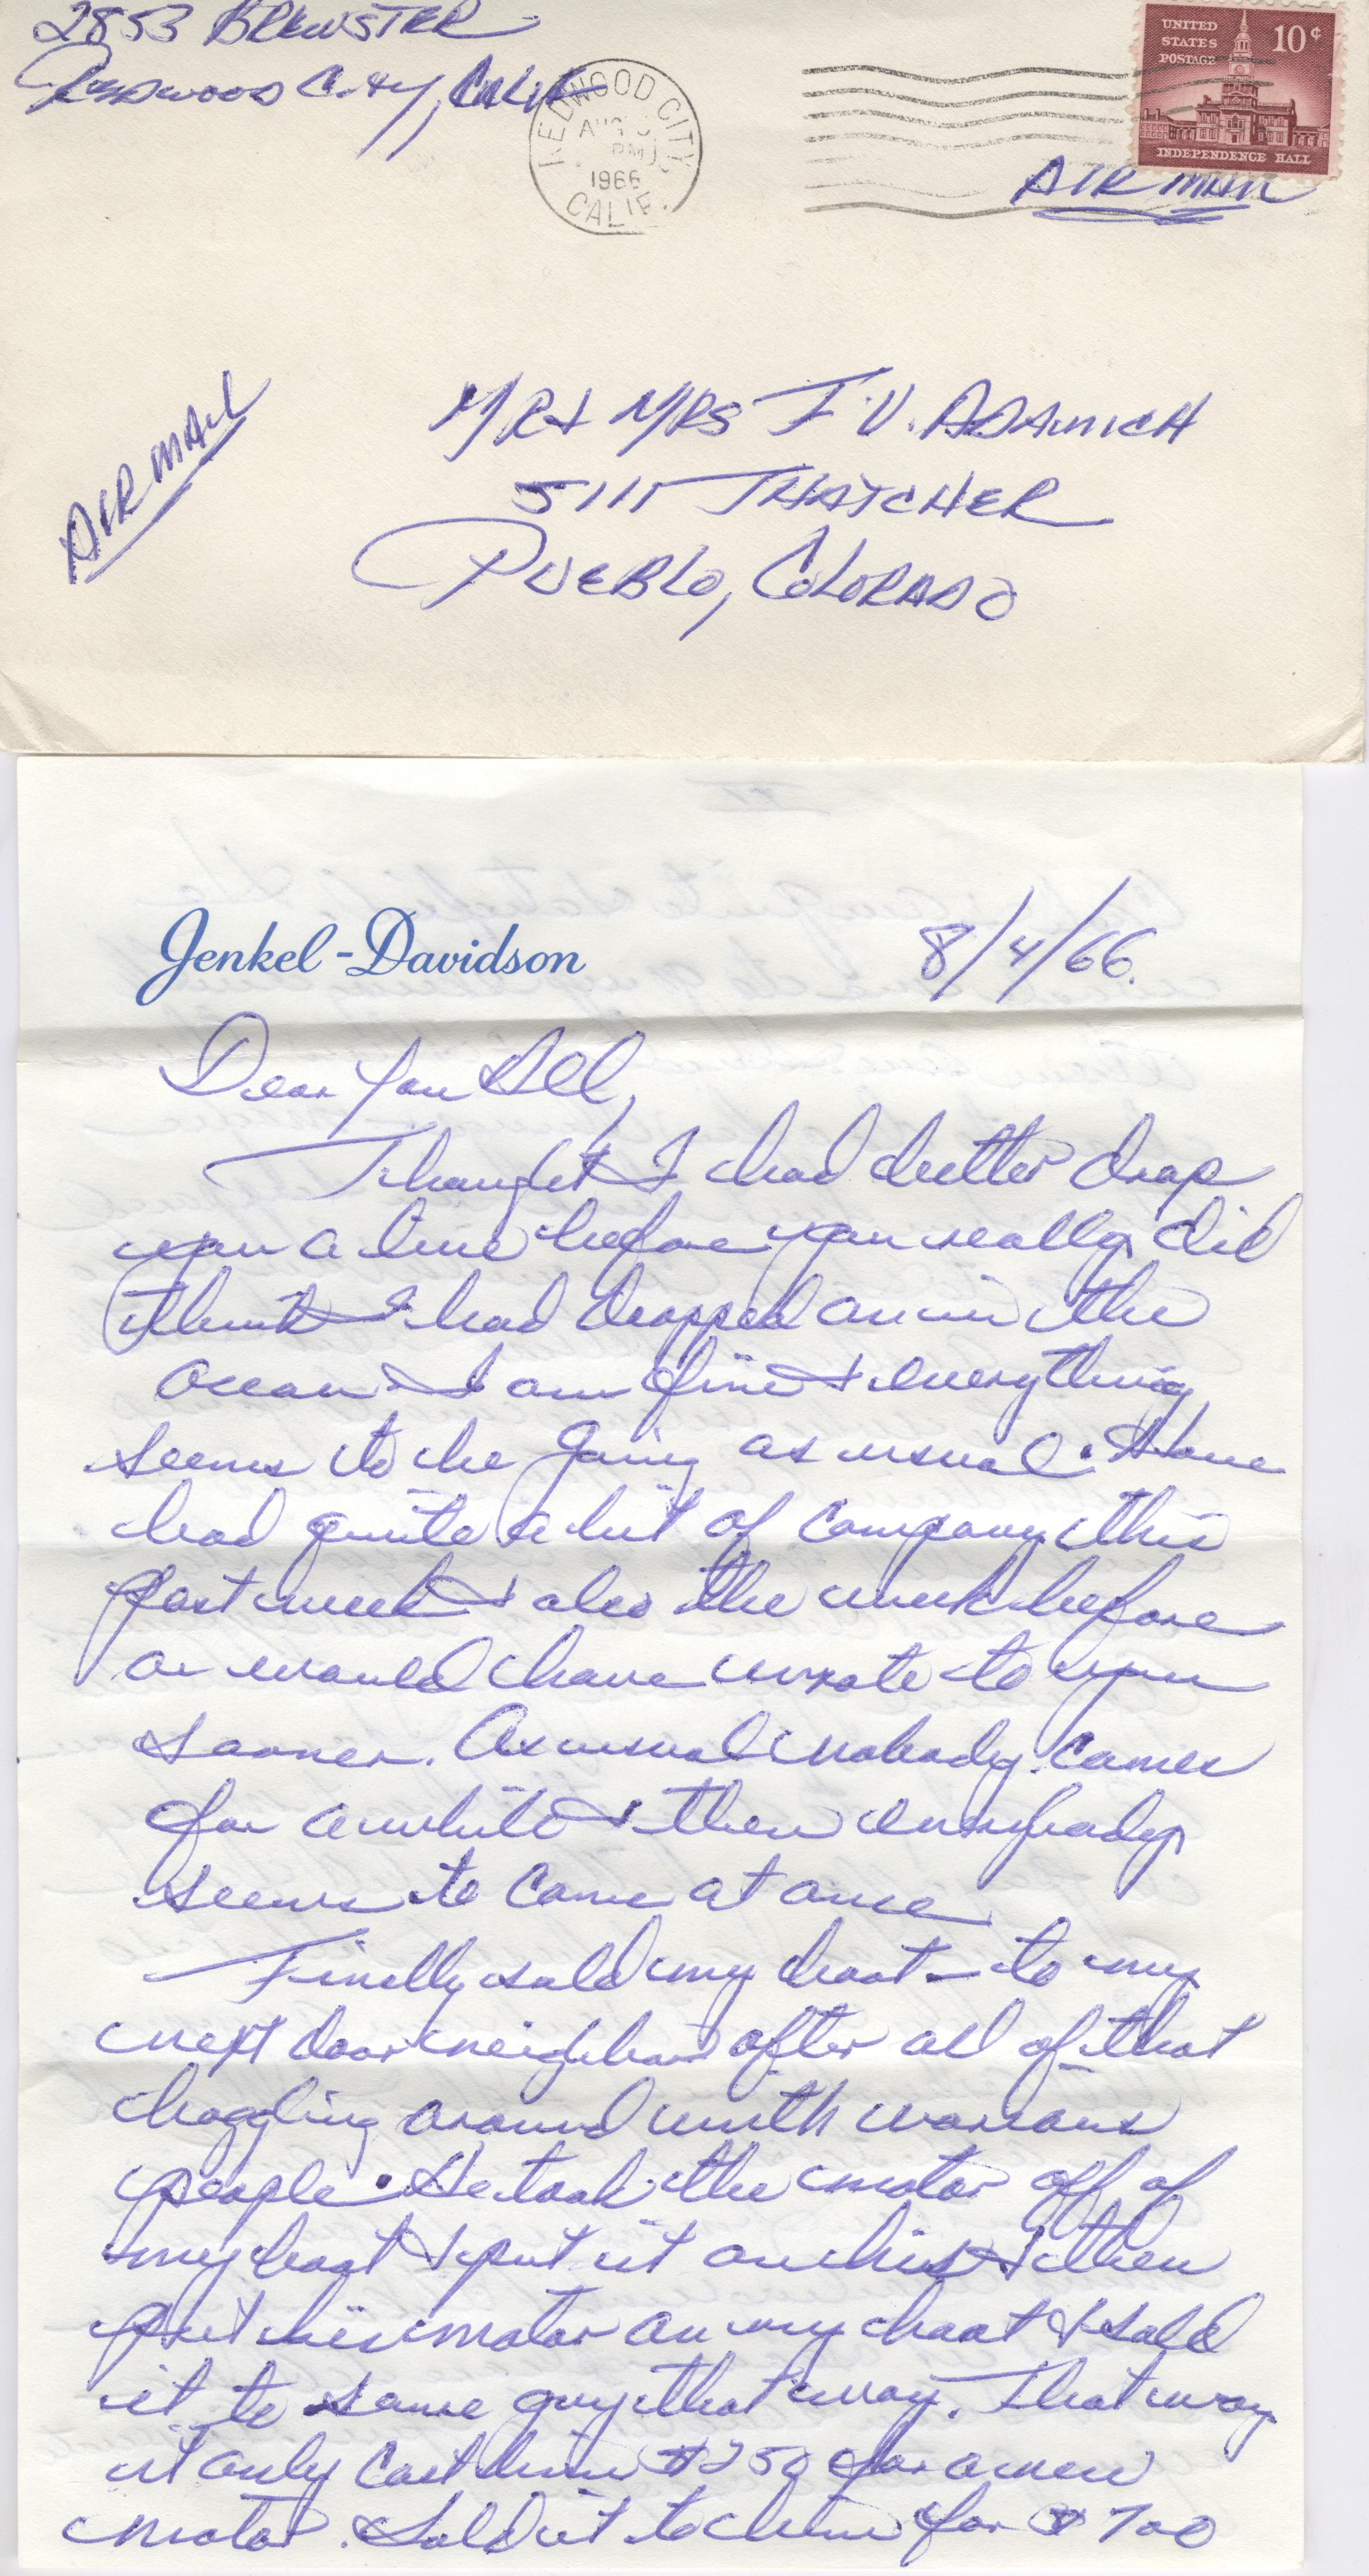 2853 BREWSTER
Redwood City, Calif
REDWOOD CITY
AUG
PM
1966
CALIF.
UNITED
STATES
POSTAGE
10¢
INDEPENDENCE HALL
AIR MAIL
AIR MAIL
MR & MRS J. V. ADAMICH
5111 THATCHER
PUEBLO, COLORADO
Jenkel-Davidson
8/4/66.
Dear You All,
Thought I had better drop
you a line before you really did
think I had dropped in the
ocean. I am fine & everything
seems to be going as usual. Have
had quite a bit of company this
past week & also the week before
or would have wrote to you
sooner. As usual nobody comes
for awhile & then everybody
seems to come at once.
Finally sold my boat - to my
next door neighbor after all of that
haggling around with various
people. He took the motor off of
my boat & put it on his & then
put his motor on my boat & sold
it to some guy that way. That way
it only cost him $250 for a new
motor. Sold it to him for $700